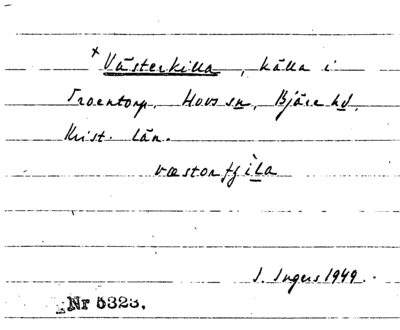 x Västerkilla, källa i
Troentorp, Hovs sn, Bjäre hd,
Krist. län.
I. Ingers 1949.
Nr 5323.